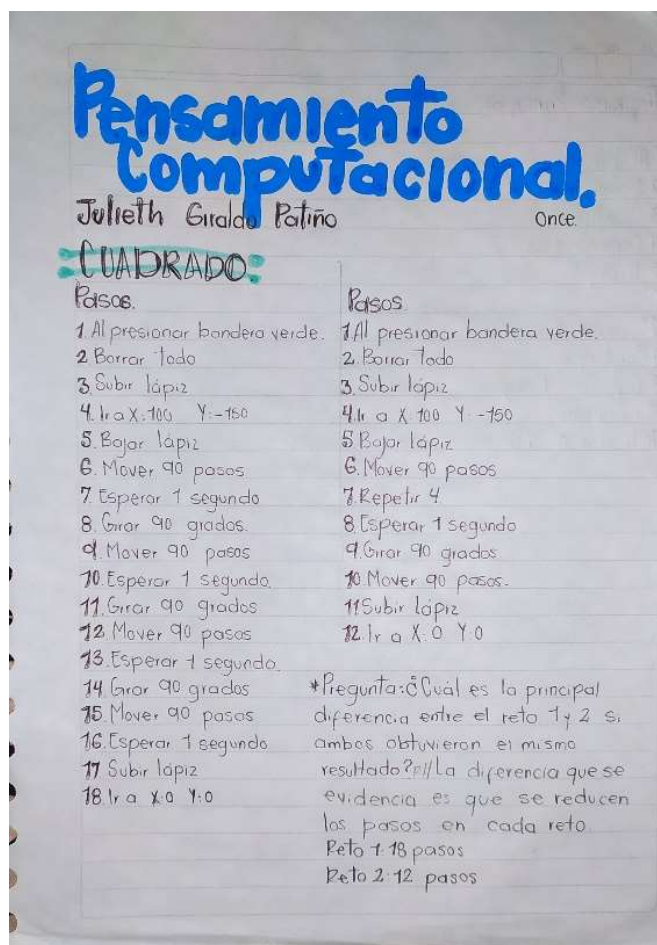 Pensamiento
Computacional.
Julieth Giraldo Patiño
Once.
CUADRADO
Pasos.
1. Al presionar bandera verde.
2 Borrar todo
3. Subir lápiz
4. Ir a X:100 Y:-150
5. Bajar lápiz
6. Mover 90 pasos
7. Esperar 1 segundo
8. Girar 90 grados.
9. Mover 90 pasos
10. Esperar 1 segundo.
11. Girar 90 grados
12 Mover 90 pasos
13. Esperar 1 segundo.
14. Girar 90 grados
15. Mover 90 pasos
16. Esperar 1 segundo
17 Subir lápiz
18. Ir a X:0 Y:0
Pasos
1. Al presionar bandera verde.
2. Borrar todo
3. Subir lápiz
4. Ir a X:100 Y:-150
5 Bajar lápiz
6. Mover 90 pasos
7. Repetir 4
8 Esperar 1 segundo
9. Girar 90 grados
10. Mover 90 pasos.
11 Subir lápiz
12. Ir a X:0 Y:0
*Pregunta: ¿Cuál es la principal
diferencia entre el reto 1 y 2 si
ambos obtuvieron el mismo
resultado? R// La diferencia que se
evidencia es que se reducen
los pasos en cada reto.
Reto 1: 18 pasos
Reto 2: 12 pasos